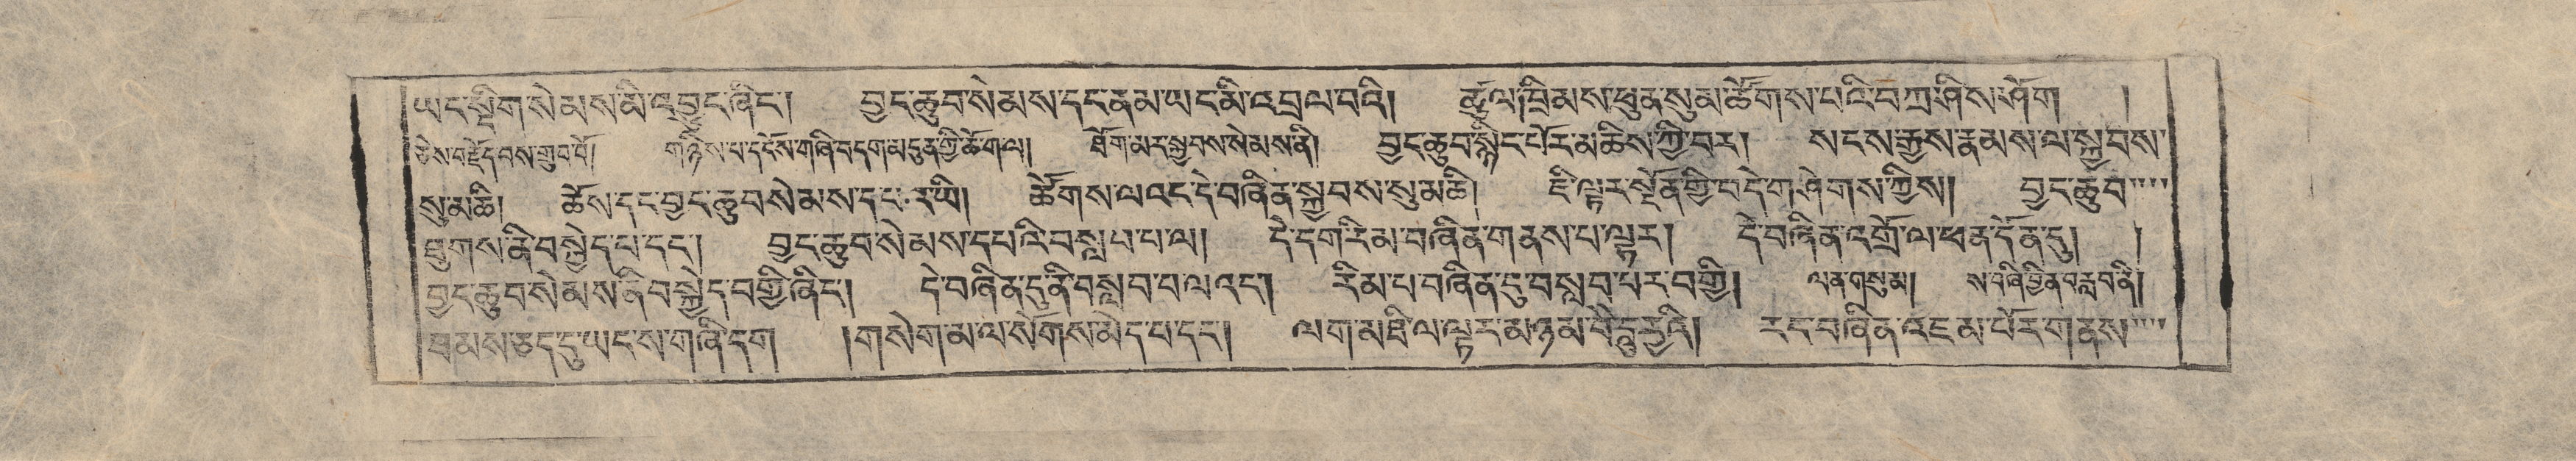 ཡང་སྡིག་སེམས་མི་འབྱུང་ཞིང་། བྱང་ཆུབ་སེམས་དང་ནམ་ཡང་མི་འབྲལ་བའི། ཚུལ་ཁྲིམས་ཕུན་སུམ་ཚོགས་པའི་བཀྲ་ཤིས་ཤོག །
ཅེས་བརྗོད་པས་གྲུབ་བོ། གཉིས་པ་དངོས་གཞི་བདག་མདུན་གྱི་ཆོ་ག་ལ། ཐོག་མར་སྐྱབས་སེམས་ནི། བྱང་ཆུབ་སྙིང་པོར་མཆིས་ཀྱི་བར། སངས་རྒྱས་རྣམས་ལ་སྐྱབས་
སུ་མཆི། ཆོས་དང་བྱང་ཆུབ་སེམས་དཔའ་ཡི། ཚོགས་ལའང་དེ་བཞིན་སྐྱབས་སུ་མཆི། ཇི་ལྟར་སྔོན་གྱི་བདེ་གཤེགས་ཀྱིས། བྱང་ཆུབ་
ཐུགས་ནི་བསྐྱེད་པ་དང་། བྱང་ཆུབ་སེམས་དཔའི་བསླབ་པ་ལ། དེ་དག་རིམ་བཞིན་གནས་པ་ལྟར། དེ་བཞིན་འགྲོ་ལ་ཕན་དོན་དུ། །
བྱང་ཆུབ་སེམས་ནི་བསྐྱེད་བགྱི་ཞིང་། དེ་བཞིན་དུ་ནི་བསླབ་པ་ལའང་། རིམ་པ་བཞིན་དུ་བསླབ་པར་བགྱི། ལན་གསུམ། ས་གཞི་བྱིན་བརླབ་ནི།
ཐམས་ཅད་དུ་ཡང་ས་གཞི་དག །གསེག་མ་ལ་སོགས་མེད་པ་དང་། ལག་མཐིལ་ལྟར་མཉམ་བཻཌཱུརྱའི། རང་བཞིན་འཇམ་པོར་གནས་